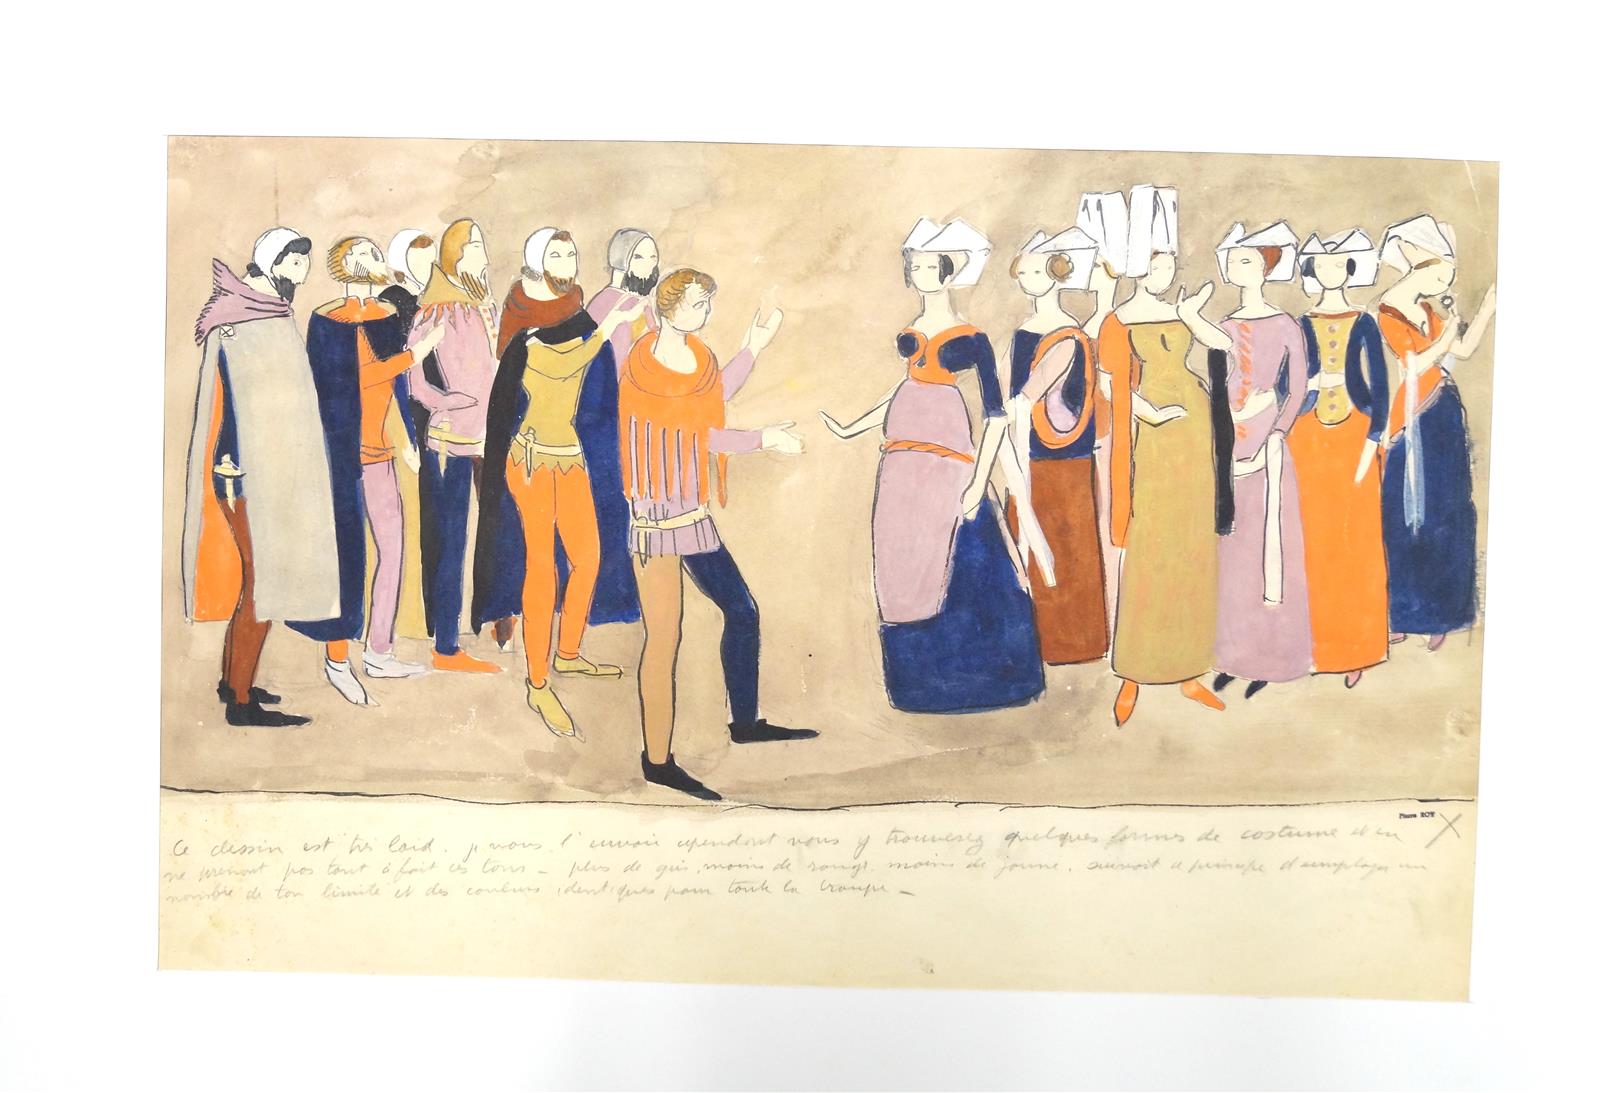 Pierre ROY
Ce dessin est très laid. je vous l'envoie cependant vous y trouverez quelques formes de costume et en
ne prenant pas tout à fait ces tons - plus de gris, moins de rouge, moins de jaune. suivant le principe d'employer un
nombre de ton limité et des couleurs identiques pour toute la troupe -